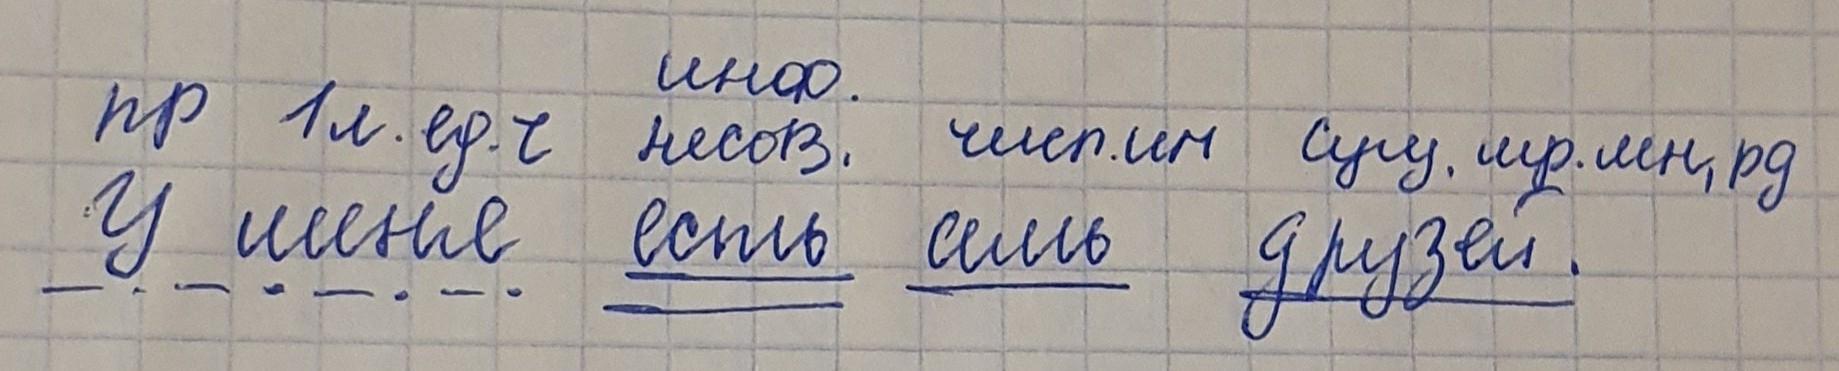 инф.
пр 1л. ед.ч несов. числ.им сущ. мр. мн, рд
У меня есть семь друзей.